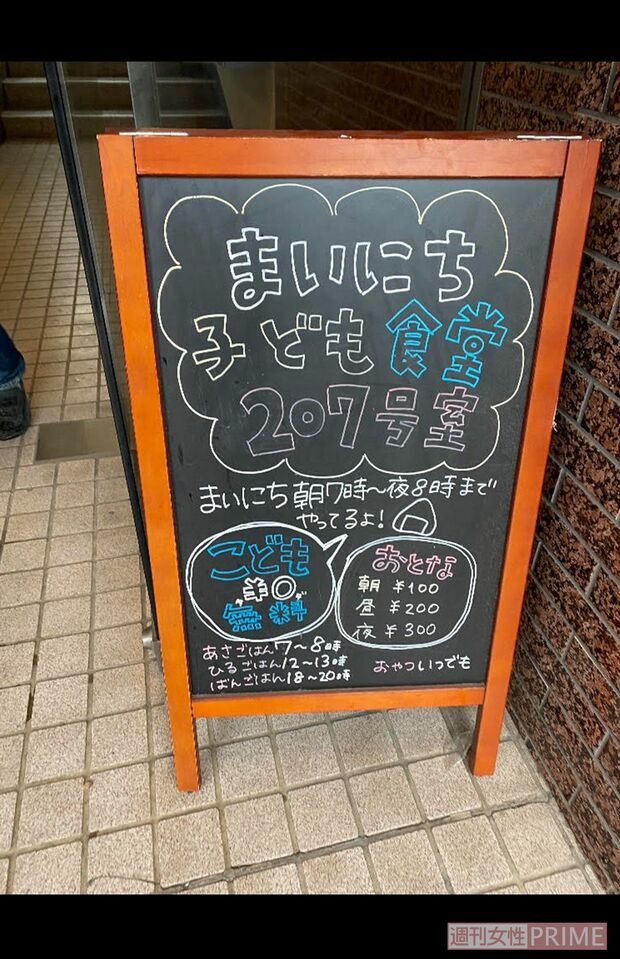 まいにち
子ども食堂
207号室
まいにち朝7時〜夜8時まで
やってるよ!
こども
¥0
無料
おとな
朝 ¥100
昼 ¥200
夜 ¥300
あさごはん7〜8時
ひるごはん12〜13時
ばんごはん18〜20時
おやついつでも
週刊女性PRIME